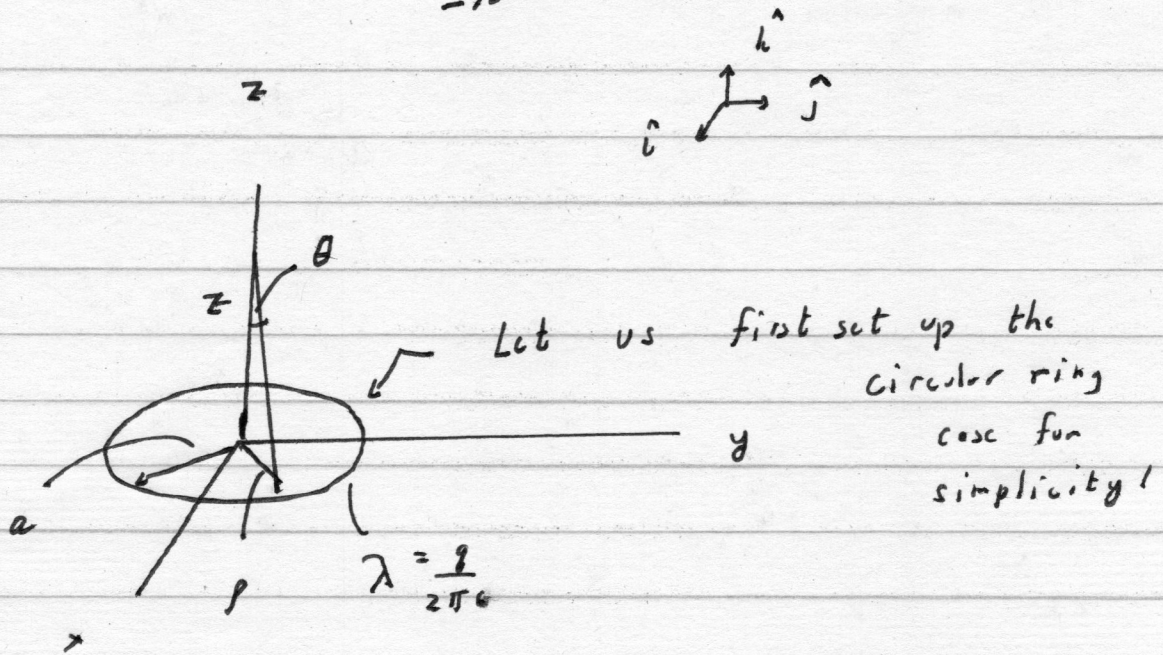 k̂
z
ĵ
î
θ
z
Let us first set up the
circular ring
case for
simplicity!
y
a
λ = q / 2πa
ρ
x